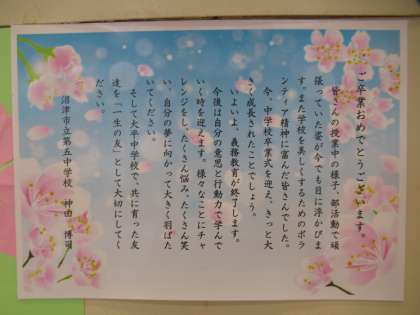 ご卒業おめでとうございます。
皆さんの授業中の様子、部活動で頑
張っていた姿が今でも目に浮かびま
す。また学校を美しくするためのボラ
ンティア精神に富んだ皆さんでした。
今、中学校卒業式を迎え、きっと大
きく成長されたことでしょう。
いよいよ、義務教育が終了します。
今後は自分の意思と行動力で学んで
いく時を迎えます。様々なことにチャ
レンジをし、たくさん悩み、たくさん笑
い、自分の夢に向かって大きく羽ばた
いてください。
そして大平中学校で、共に育った友
達を「一生の友」として大切にしてく
ださい。
沼津市立第五中学校 神田 博司